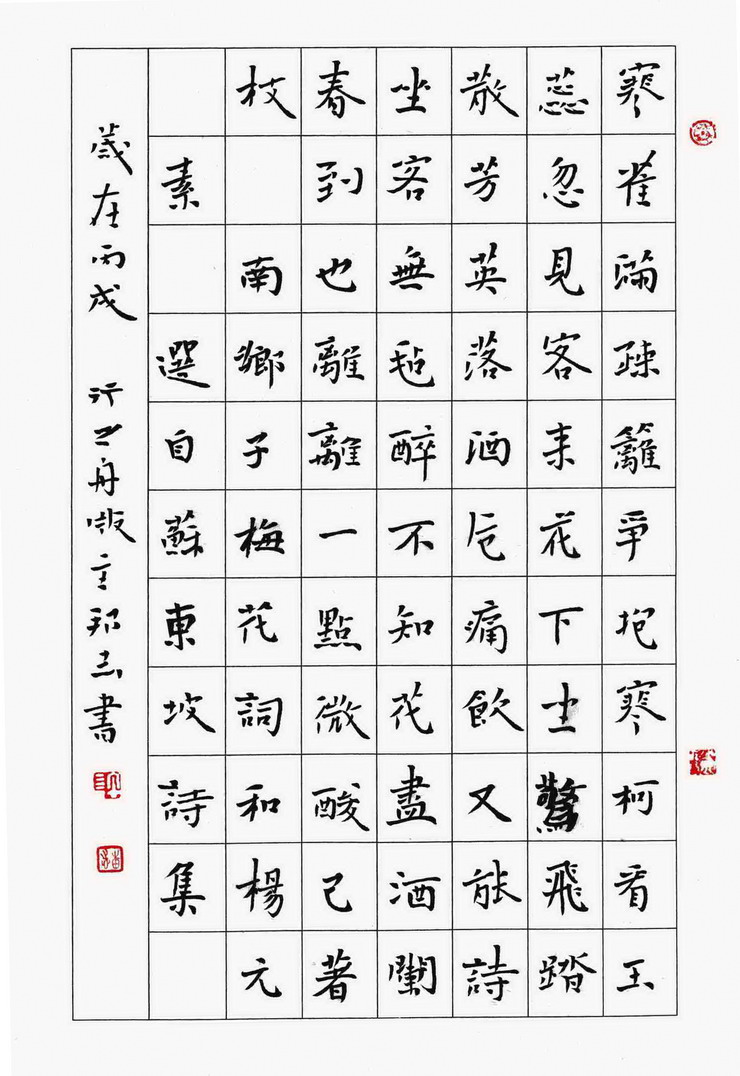 寒雀滿疎籬爭抱寒柯看玉
蕊忽見客来花下坐驚飛踏
散芳英落酒卮痛飲又能詩
坐客無毡醉不知花盡酒闌
春到也離離一點微酸已著
枝 南鄉子梅花詞和楊元
素 選自蘇東坡詩集
歲在丙戌 舟主邦志書